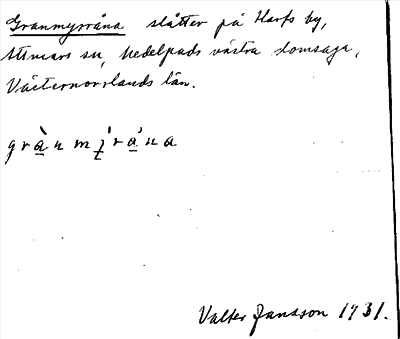 Granmyrråna slåtter på Harfs by,
Attmars sn, Medelpads västra domsaga,
Västernorrlands län.
grànmýråna
Valter Jansson 1931.